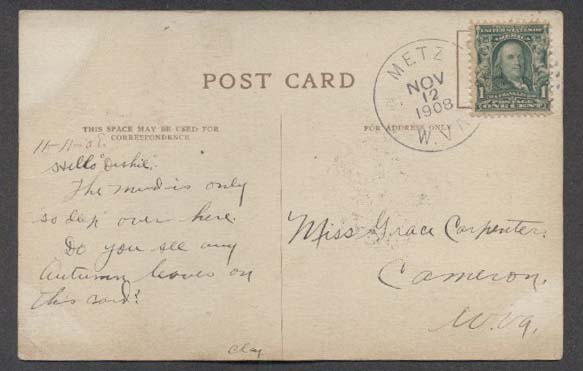 POST CARD
THIS SPACE MAY BE USED FOR
CORRESPONDENCE
FOR ADDRESS ONLY
METZ
NOV
12
1908
W.VA
UNITED STATES OF AMERICA
1 1
POSTAGE
ONE CENT
11-11-08.
Hello
The mud is only
"so deep" over here.
Do you see any
Autumn leaves on
this card?
Clay
Miss Grace Carpenter.
Cameron.
W.Va.